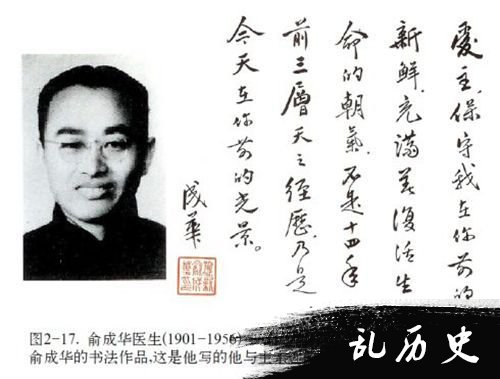 愛主,保守我在你前的
新鮮,充滿着復活生
命的朝氣,不是十四年
前三層天之經歷,乃是
今天在你前的光景。
成華
图2-17. 俞成华医生(1901-1956)
俞成华的书法作品,这是他写的他与
乱历史